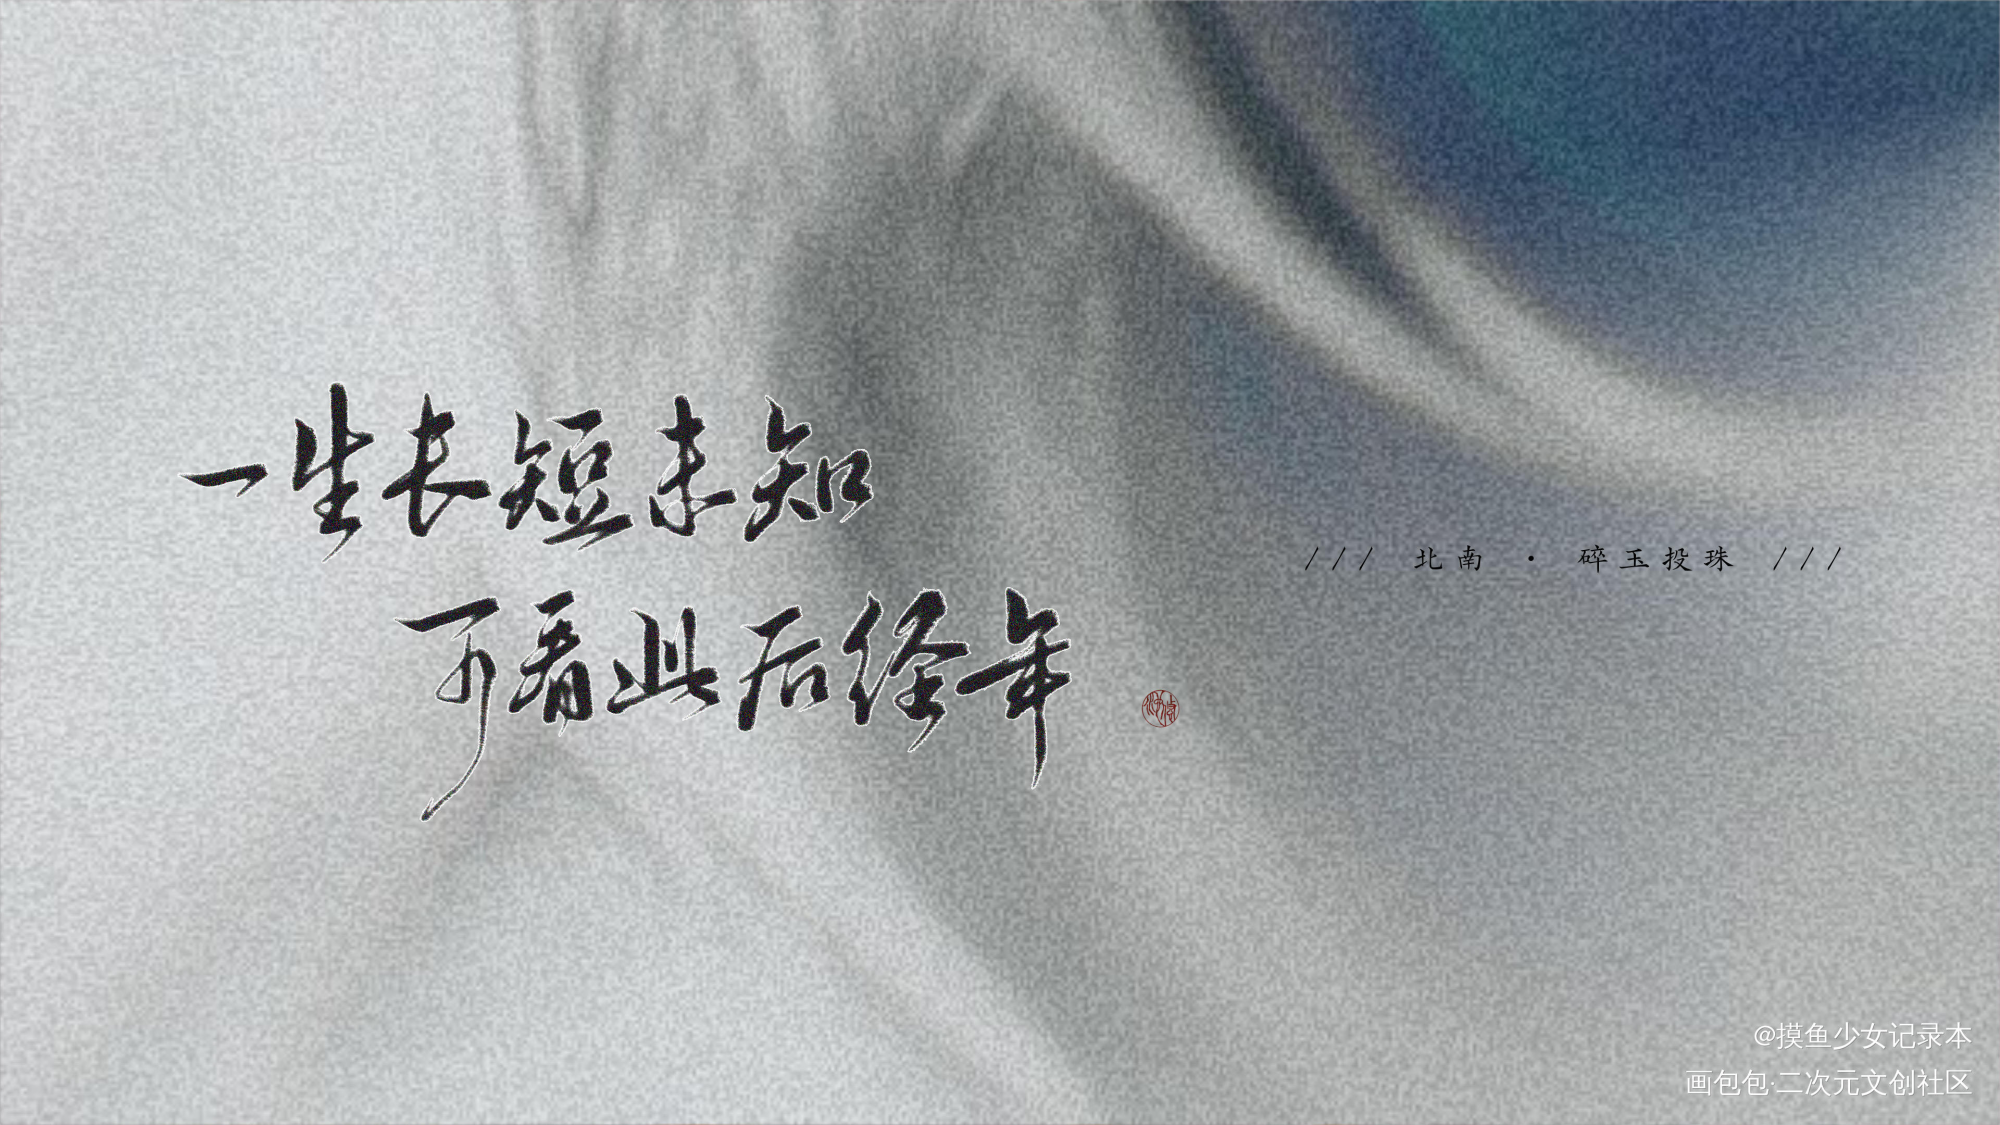 一生长短未知
可看此后经年
/// 北南 · 碎玉投珠 ///
@摸鱼少女记录本
画包包·二次元文创社区